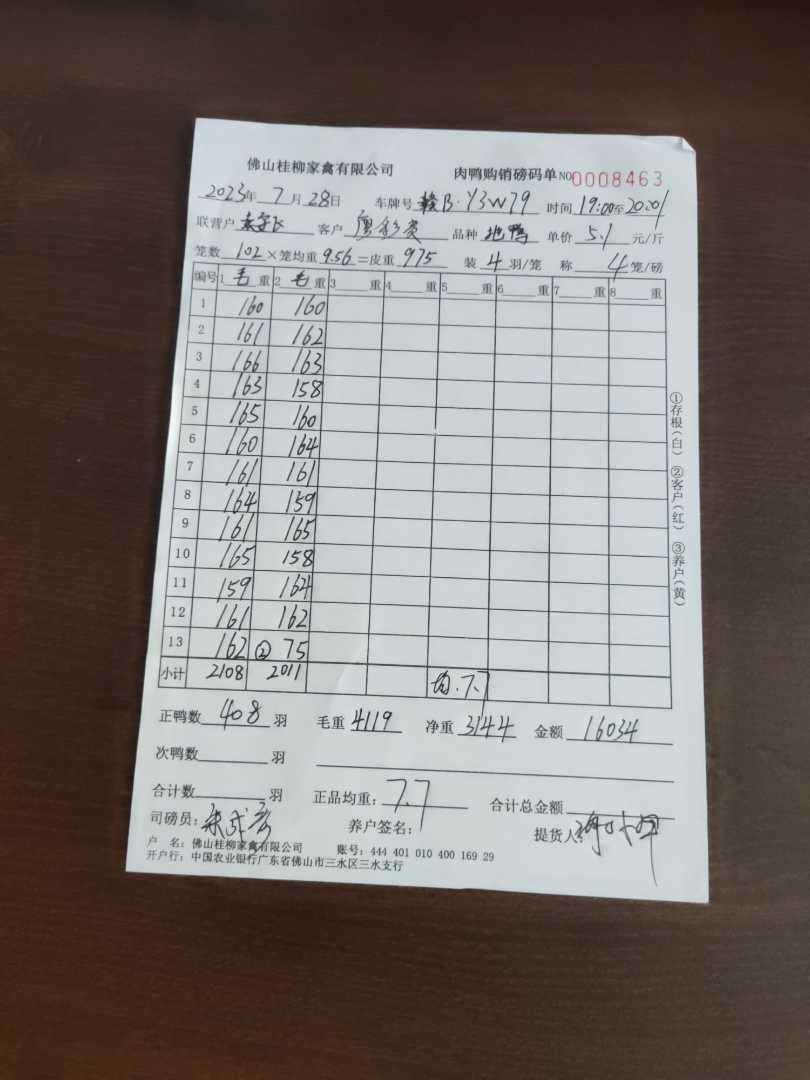 佛山桂柳家禽有限公司 肉鸭购销磅码单 NO 0008463
2023年 7月 28日 车牌号 赣B·Y3W79 时间 19:00至20:01
联营户 客户 廖彩贵 品种 地鸭 单价 5.1 元/斤
笼数 102 ×笼均重 9.56 =皮重 975 装 4 羽/笼 称 4 笼/磅
编号 1 毛 重 2 毛 重 3 重 4 重 5 重 6 重 7 重 8 重
1 160 160
2 161 162
3 166 163
4 163 158
5 165 160
6 160 164
7 161 161
8 164 159
9 161 165
10 165 158
11 159 164
12 161 162
13 162 ② 75
小计 2108 2011 均.7.7
①存根(白) ②客户(红) ③养户(黄)
正鸭数 408 羽 毛重 4119 净重 3144 金额 16034
次鸭数 羽
合计数 羽 正品均重: 7.7 合计总金额
司磅员: 养户签名: 提货人:
户 名: 佛山桂柳家禽有限公司 账号: 444 401 010 400 169 29
开户行: 中国农业银行广东省佛山市三水区三水支行